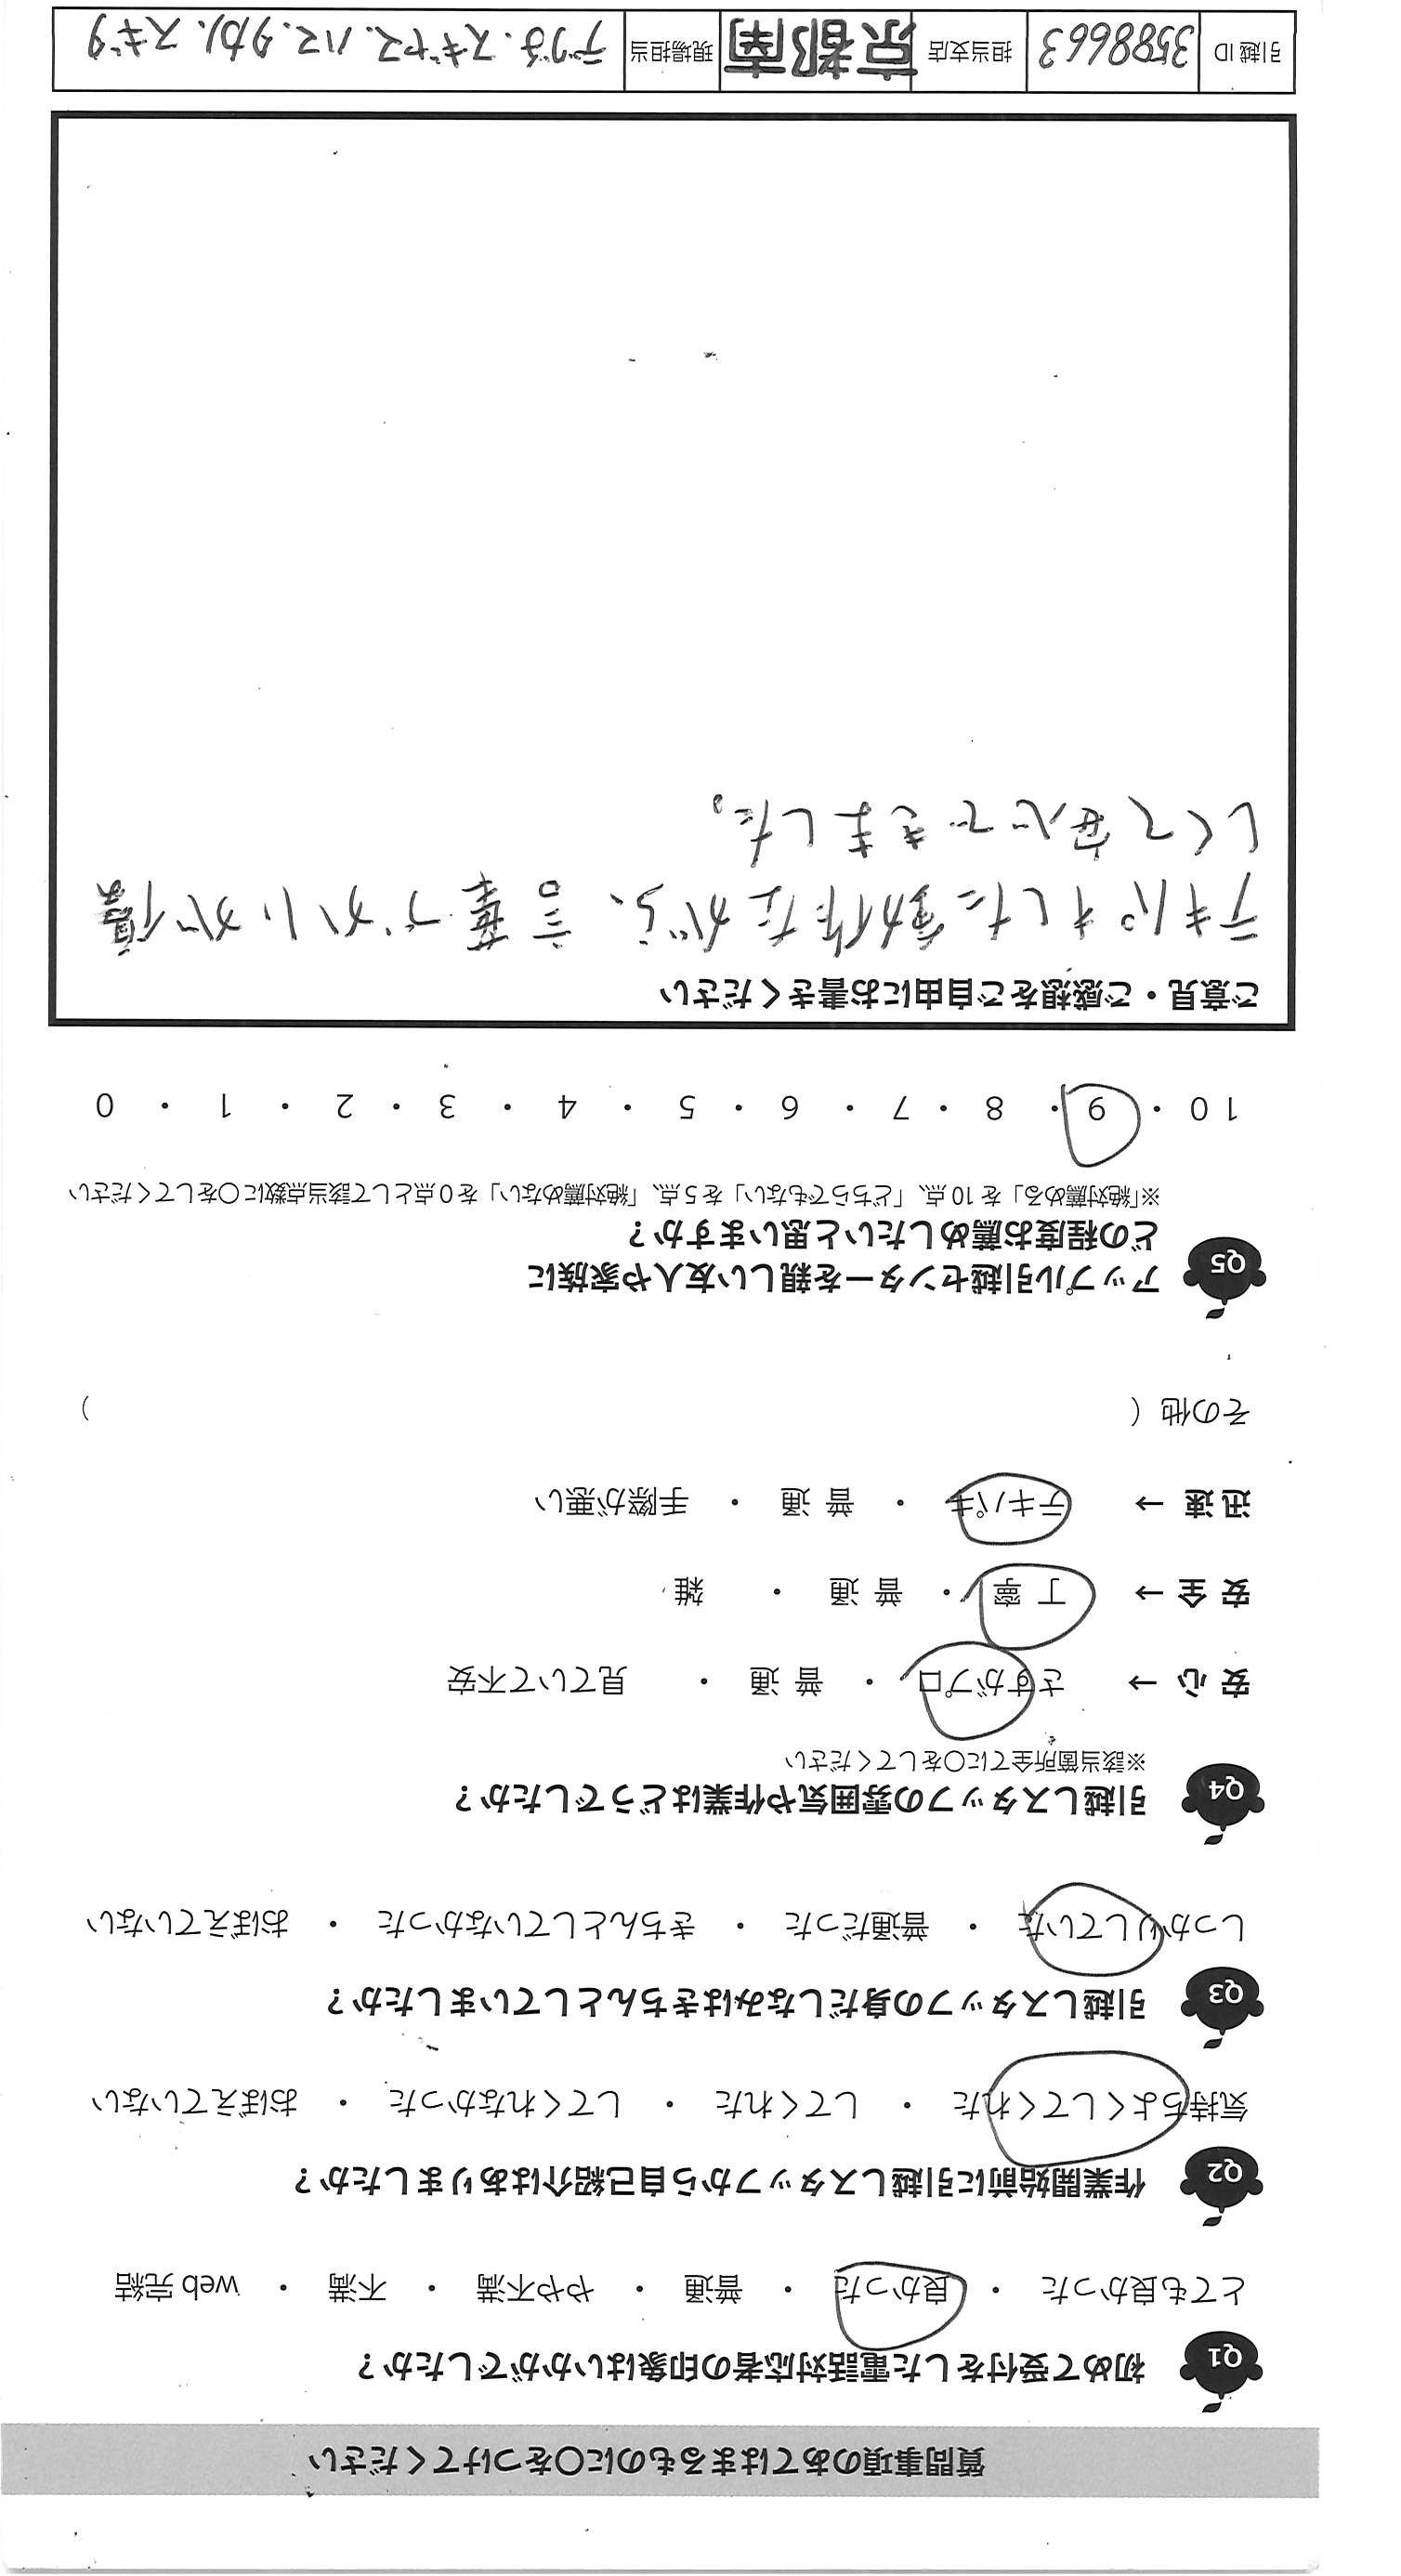 質問事項のあてはまるものに〇をつけてください
Q1 初めて受付をした電話対応者の印象はいかがでしたか？
とても良かった ・ 良かった ・ 普通 ・ やや不満 ・ 不満 ・ web 完結
Q2 作業開始前に引越しスタッフから自己紹介はありましたか？
気持ちよくしてくれた ・ してくれた ・ してくれなかった ・ おぼえていない
Q3 引越しスタッフの身だしなみはきちんとしていましたか？
しっかりしていた ・ 普通だった ・ きちんとしていなかった ・ おぼえていない
Q4 引越しスタッフの雰囲気や作業はどうでしたか？
※該当箇所全てに〇をしてください
安 心 → さすがプロ ・ 普 通 ・ 見ていて不安
安 全 → 丁 寧 ・ 普 通 ・ 雑
迅 速 → テキパキ ・ 普 通 ・ 手際が悪い
その他（ ）
Q5 アップル引越センターを親しい友人や家族に
どの程度お薦めしたいと思いますか？
※「絶対薦める」を 10 点、「どちらでもない」を 5 点、「絶対薦めない」を 0 点として該当点数に〇をしてください
10 ・ 9 ・ 8 ・ 7 ・ 6 ・ 5 ・ 4 ・ 3 ・ 2 ・ 1 ・ 0
ご意見・ご感想をご自由にお書きください
テキパキした動作ながら、言葉づかいが優
しくて安心できました。
引越 ID 3588663 担当支店 京都南 現場担当 スギヤマ、ハマ、タカ、スギタ